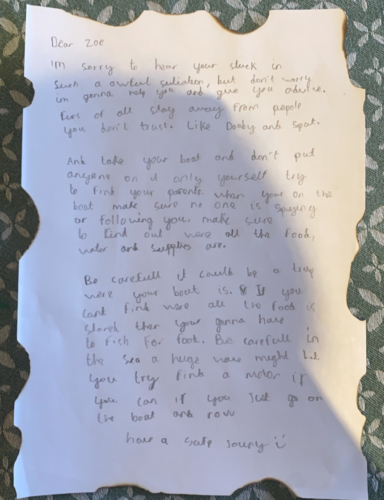 Dear Zoe
Im sorry to hear your stuck in
Such a awful sutiation, but don't worry
im gonna help you and give you advise.
Firs of all stay away from peopl
you don't trust. Like Dooby and Spat.
And take your boat and don't put
anyone on it only yourself try
to find your parents. when your on the
boat make sure no one is spying
or following you. make sure
to find out were all the food,
water and supplies are.
Be carefull it could be a trap
were your boat is. If you
cant find were all the food is
stored then your gonna have
to fish for food. Be carefull in
the sea a huge wave might hit
you try find a motor if
you can if you just go on
the boat and row
have a safe jouney :)